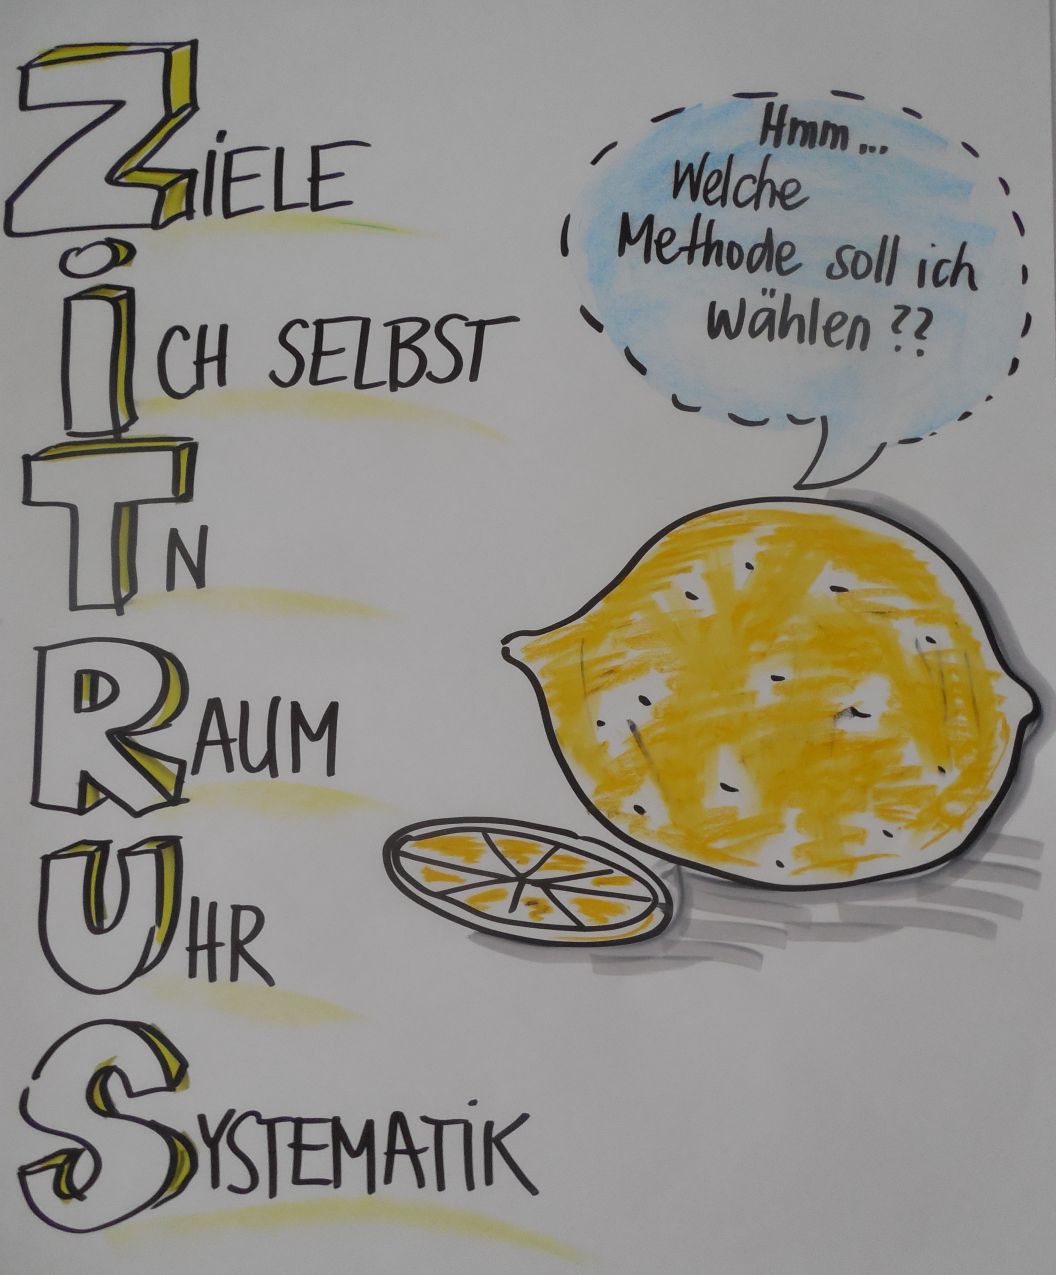 ZiELE
iCH SELBST
TN
RAUM
UHR
SYSTEMATiK
Hmm...
Welche
Methode soll ich
wählen ??